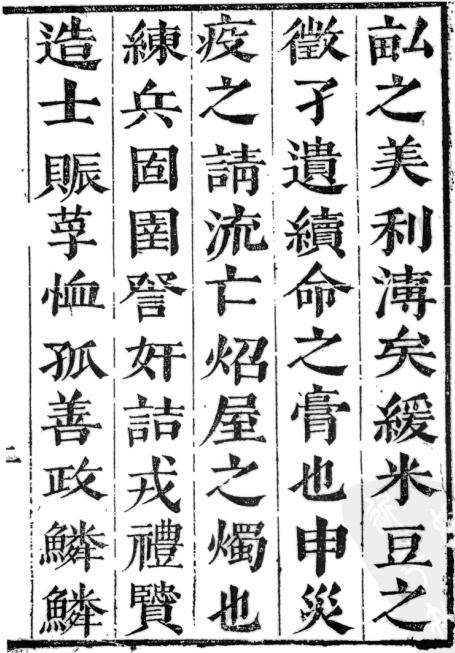 畆之美利溥矣緩米豆之
徵孑遺續命之膏也申災
疫之請流亡炤屋之燭也
練兵固圉詧奸詰戎禮賢
造士賑莩恤孤善政鱗鱗